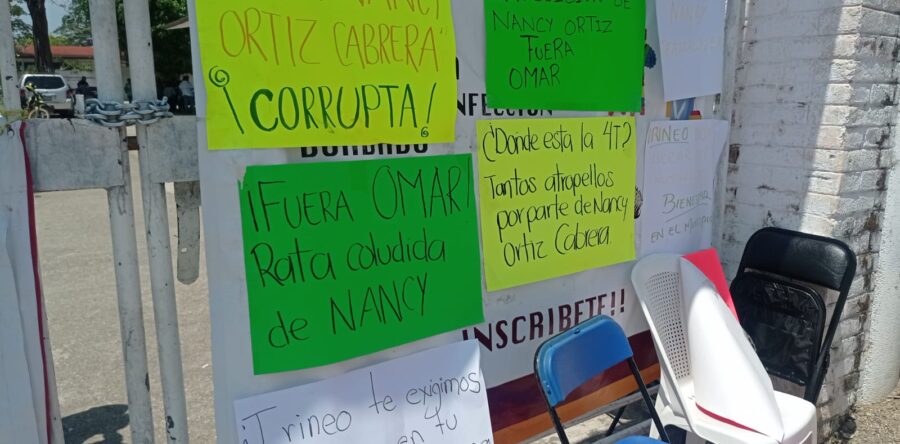 NANCY
ORTIZ CABRERA
¡CORRUPTA!
NANCY ORTIZ
FUERA
OMAR
NANCY
BORDADO
¡FUERA OMAR!
Rata coludida
de NANCY
¿Donde esta la 4T?
Tantos atropellos
por parte de Nancy
Ortiz Cabrera.
IRINEO
BIENESTAR
EN EL
INSCRIBETE!!
¡Irineo te exigimos
en tu